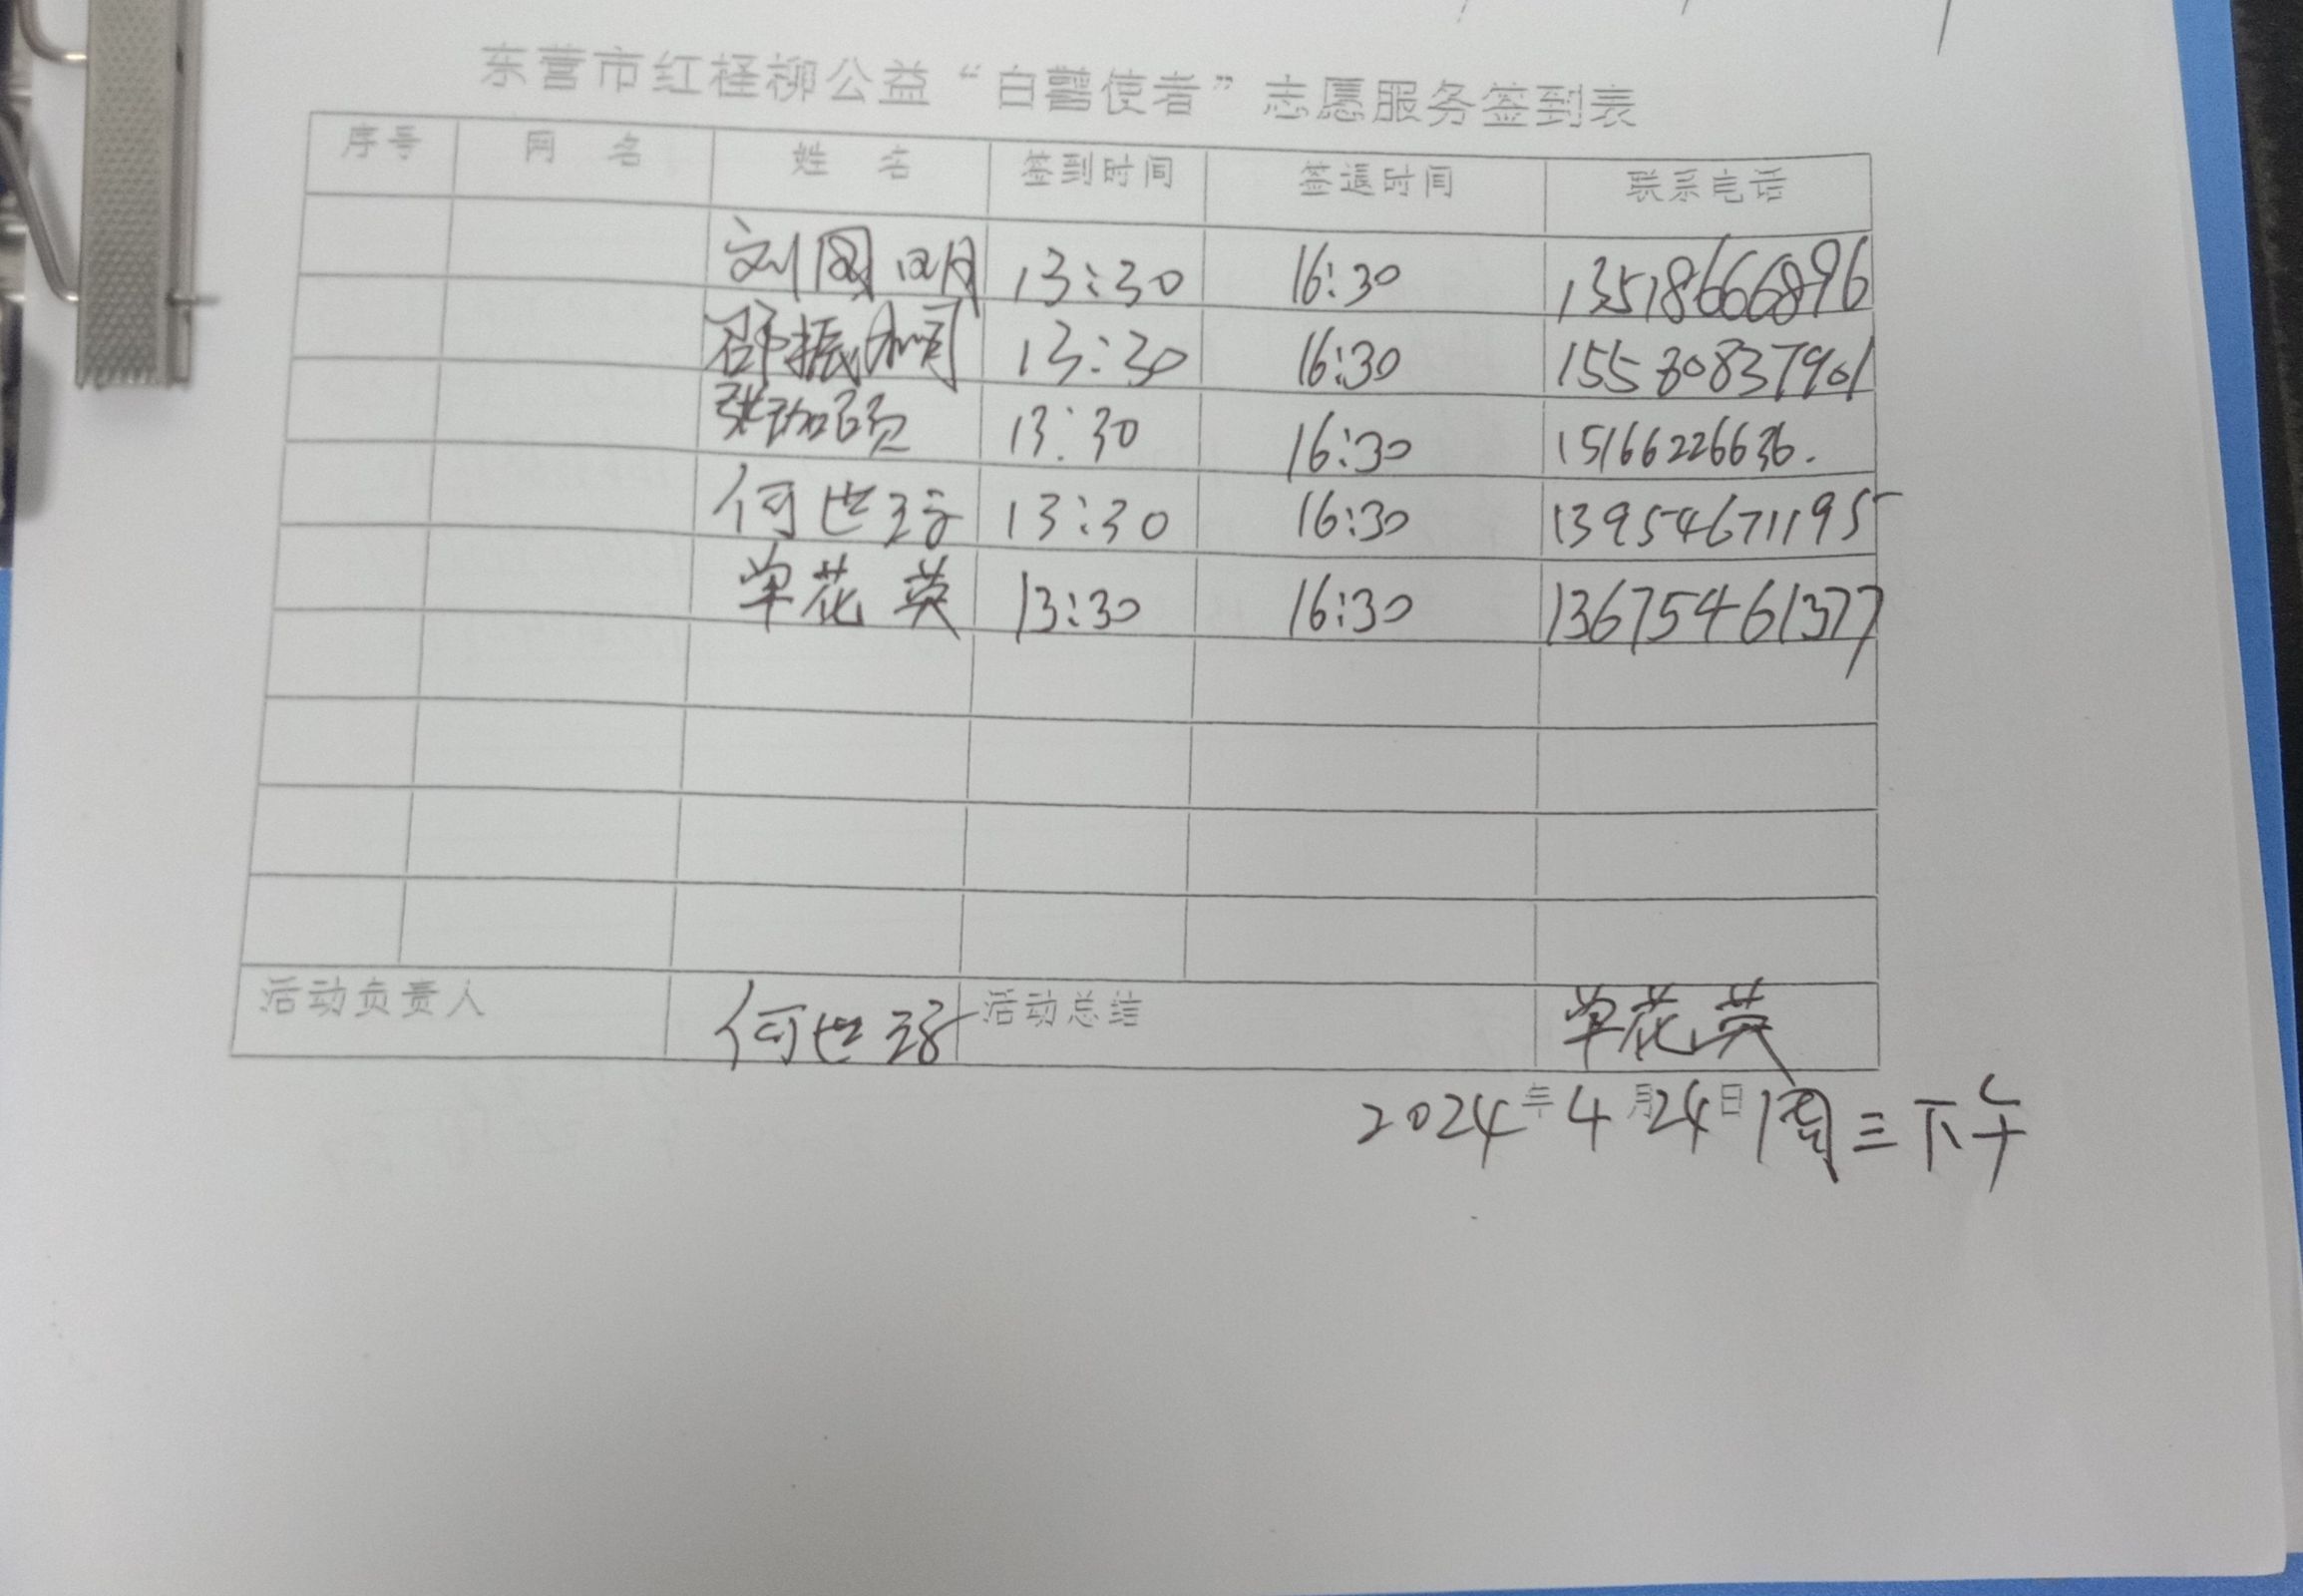 东营市红柽柳公益“白鹭使者”志愿服务签到表
序号 网 名 姓 名 签到时间 签退时间 联系电话
刘国明 13:30 16:30 13518666896
邵振 13:30 16:30 15580837901
张 13:30 16:30 15166226636.
何世 13:30 16:30 13954671195
单花英 13:30 16:30 13675461377
活动负责人 何世 活动总结 单花英
2024年4月24日 周三下午